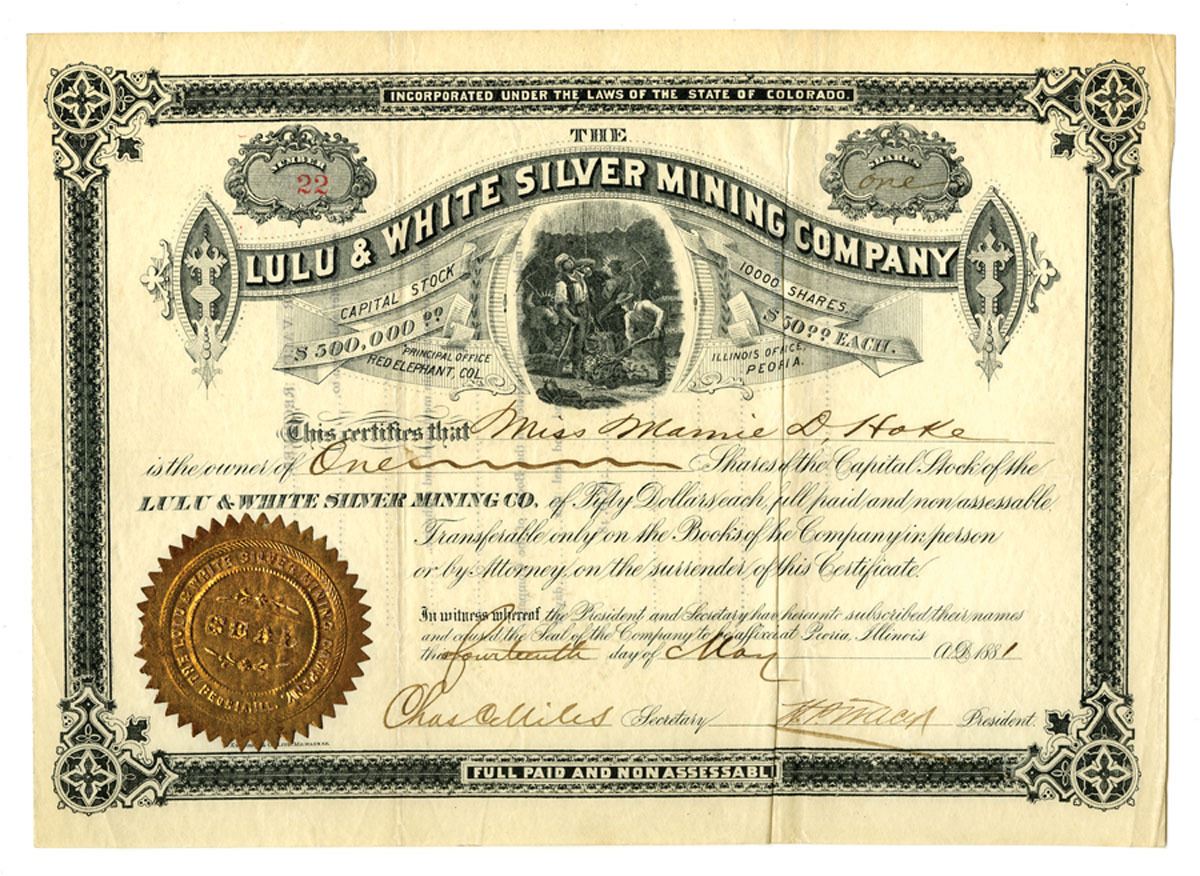 INCORPORATED UNDER THE LAWS OF THE STATE OF COLORADO.
THE
NUMBER
22
SHARES
one
LULU & WHITE SILVER MINING COMPANY
CAPITAL STOCK
$500,000 00
PRINCIPAL OFFICE
RED ELEPHANT, COL.
10000 SHARES.
$50 00 EACH.
ILLINOIS OFFICE,
PEORIA.
This certifies that Miss Mamie D. Hoke
is the owner of One Shares of the Capital Stock of the
LULU & WHITE SILVER MINING CO. of Fifty Dollars each, full paid and non assessable.
Transferable only on the Books of the Company in person
or by Attorney, on the surrender of this Certificate.
In witness whereof the President and Secretary have hereunto subscribed their names
and caused the Seal of the Company to be affixed at Peoria, Illinois
this fourteenth day of May A.D. 1881
Chas C Miles Secretary President.
THE LULU & WHITE SILVER MINING COMPANY,
SEAL
PEORIA ILL.
FULL PAID AND NONASSESSABL